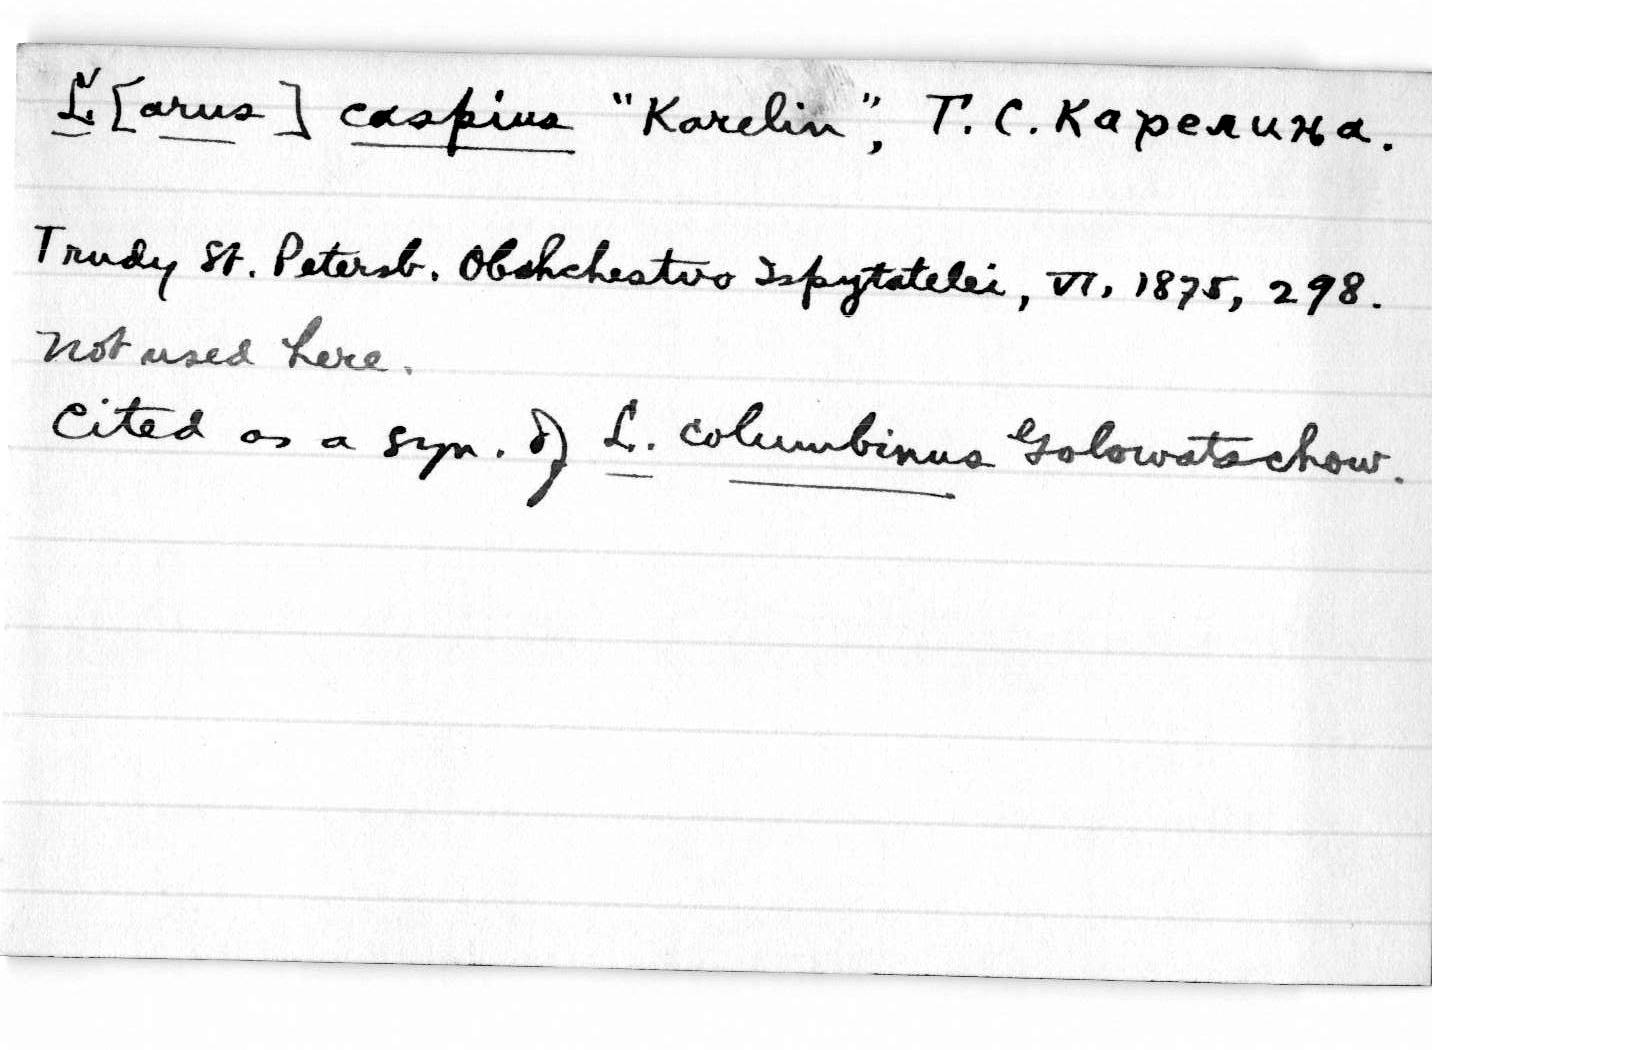 L. [arus] caspius "Karelin", Г. С. Карелина.
Trudy St. Petersb. Obshchestvo Ispytatelei, VI, 1875, 298.
Not used here.
Cited as a syn. of L. columbinus Golowatschow.